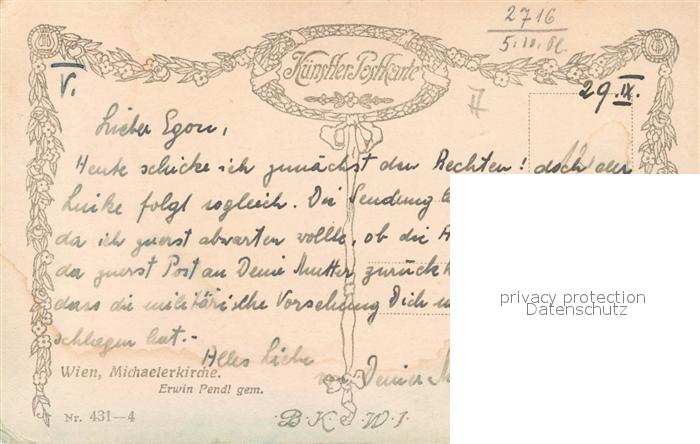 2716
5.10.
Künstler Postkarte
V.
29. IX.
Lieber Egon,
Heute schicke ich zunächst den Rechten! doch der
Linke folgt sogleich. Die Sendung
da ich zuerst abwarten wollte, ob die
da zuerst Post an Deine Mutter zurück
dass die militärische Vorsehung Dich
schlagen hat.-
Alles Liebe
von Deiner
Wien, Michaelerkirche.
Erwin Pendl gem.
Nr. 431—4
B.K.W.I.
privacy protection
Datenschutz